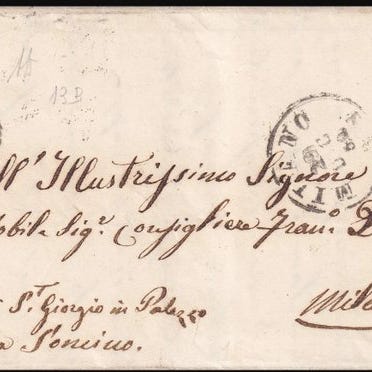 13B
MILANO
ll' Illustrissimo Signore
obile Sigr. Consigliere Frano.
St. Giorgio in Palazzo
a Soncino.